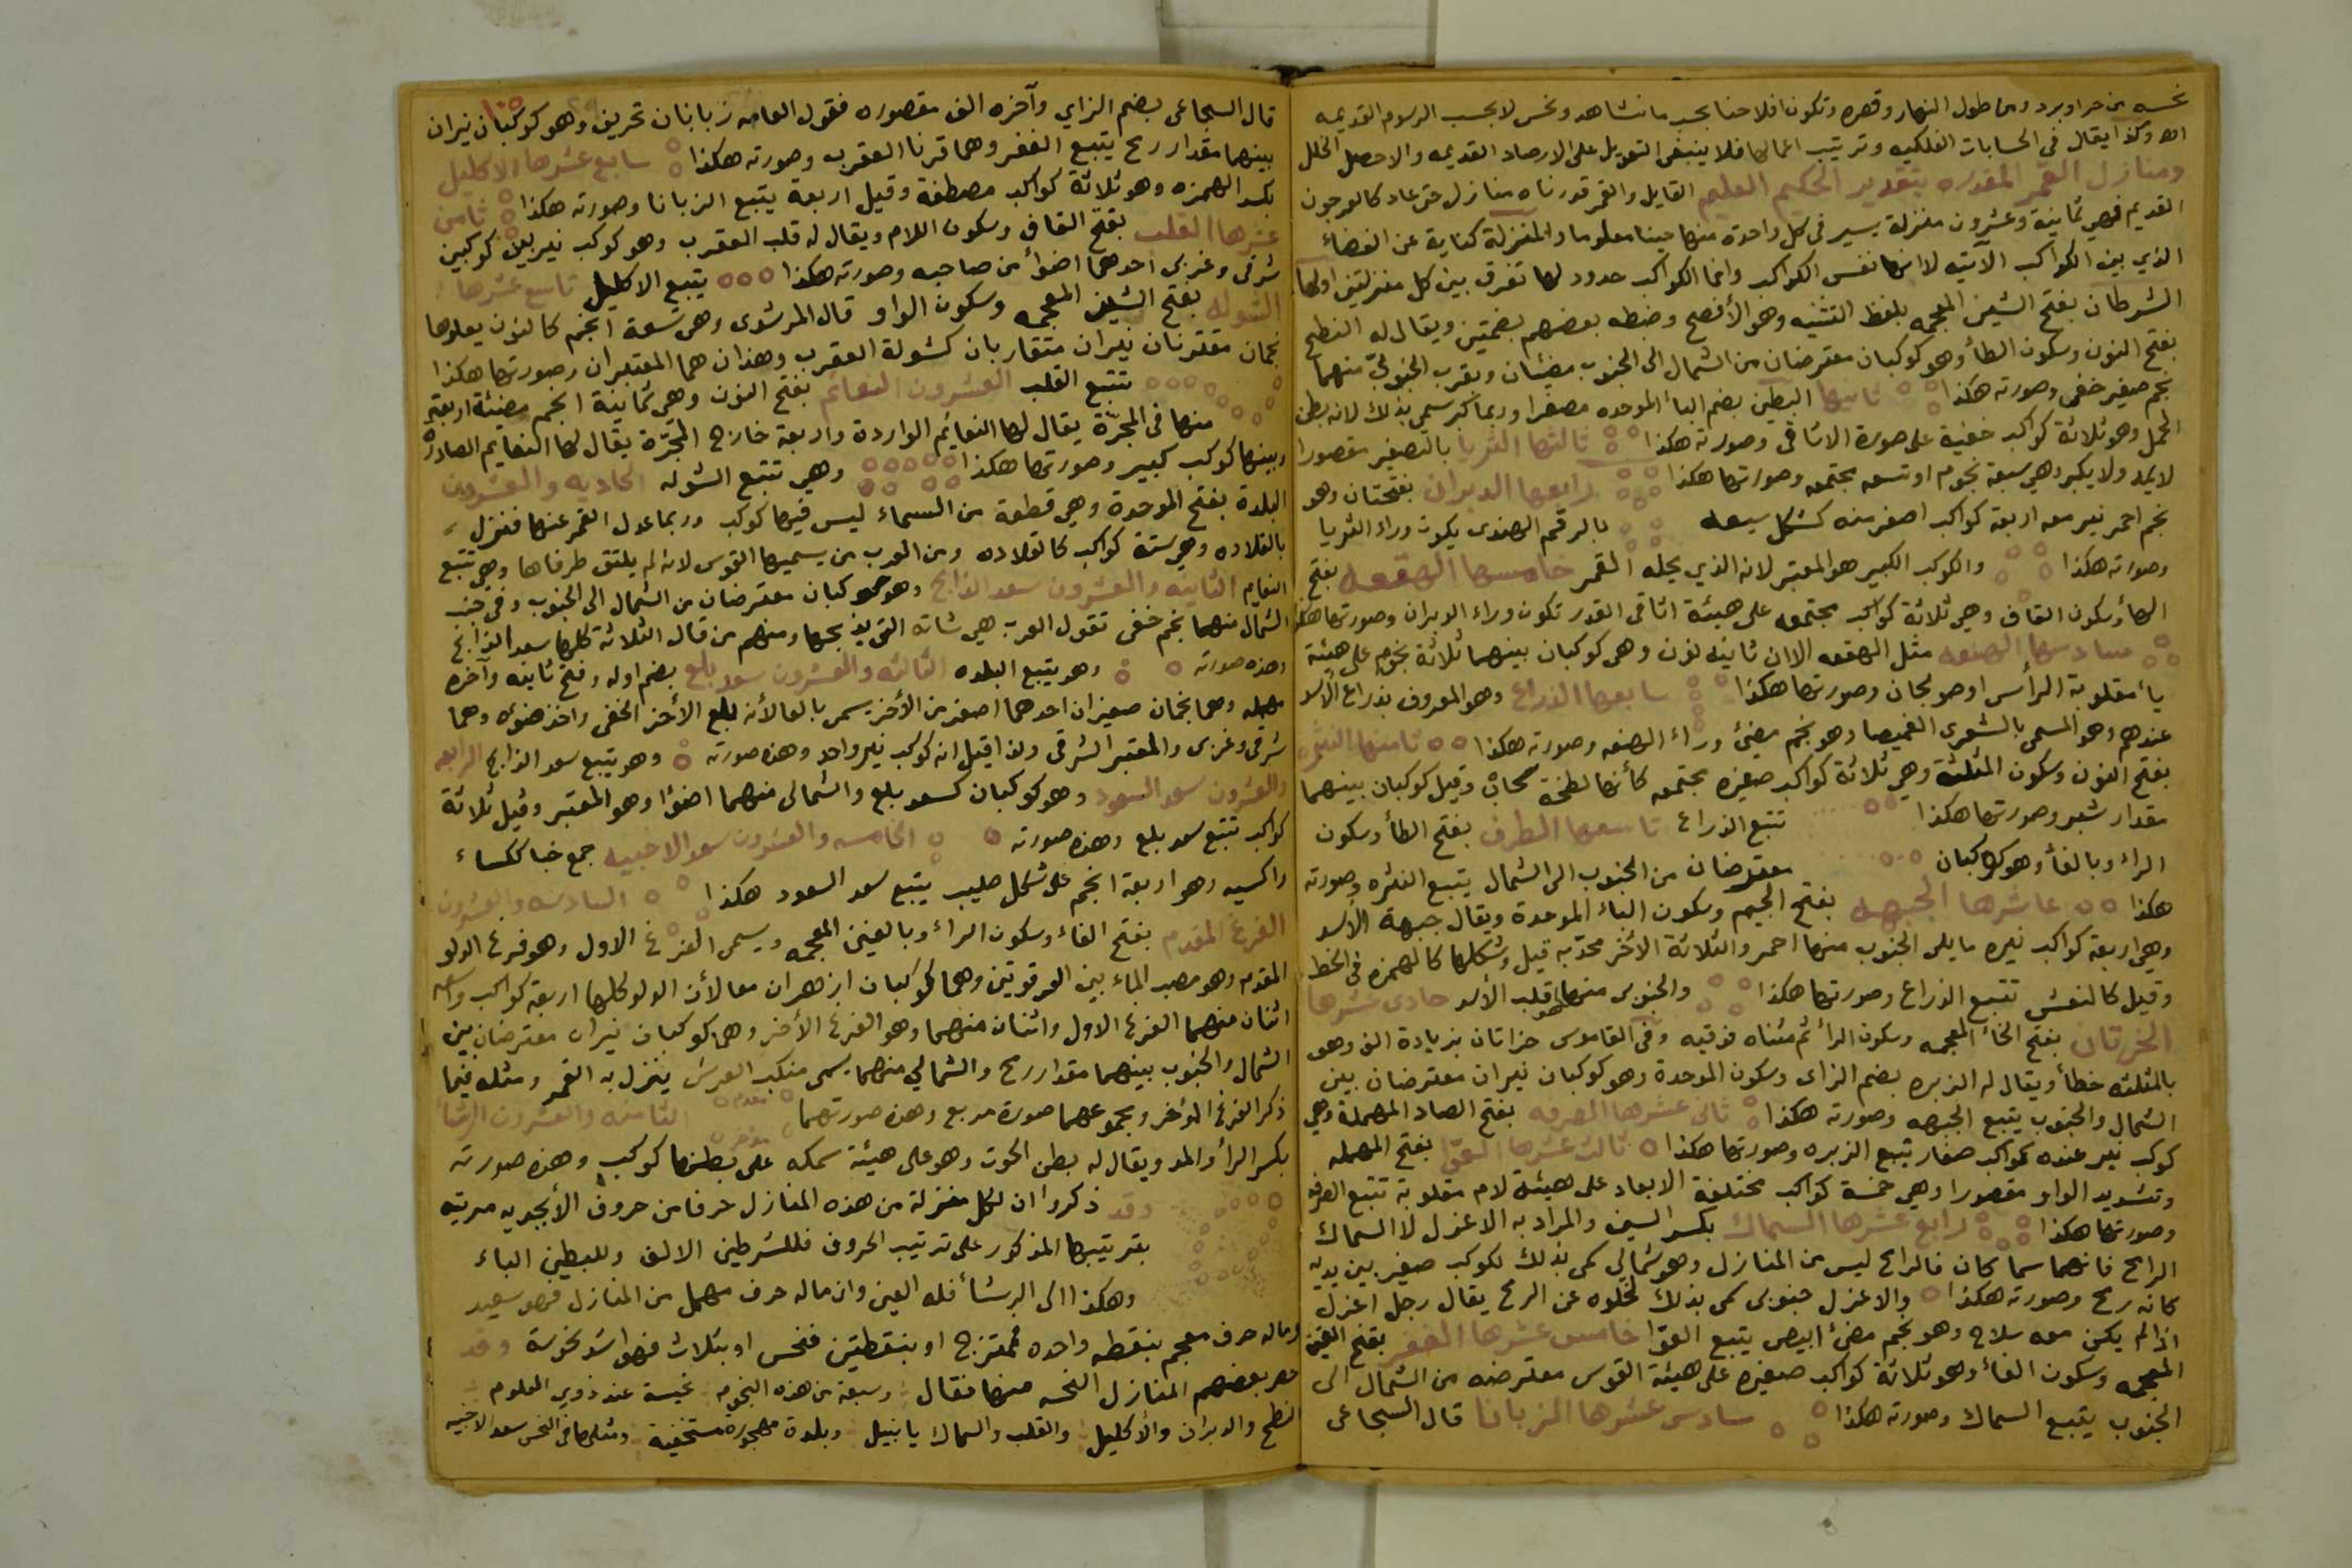 نحسه من حر او برد ومن طول النهار وقصره وتكون افلاحنا بحسب ما نشاهد ونحس لا بحسب الرسوم القديمه
اه وكذا يقال فى الحسابات الفلكيه وترتيب اعمالها فلا ينبغى التعويل على الارصاد القديمه والا حصل الخلل
ومنازل القمر المقدره بتقدير الحكيم العليم القايل والقمر قدرناه منازل حتى عاد كالعرجون
القديم فهي ثمانية وعشرون منزلة يسير فى كل واحدة منها حينا معلوما والمنزلة كناية عن الفضاء
الذي بين الكواكب الآتيه لا انها نفس الكواكب وانما الكواكب حدود لها تفرق بين كل منزلتين اولها
الشرطان بفتح الشين المعجمه بلفظ التثنيه وهو الأفصح وضبطه بعضهم بضمتين ويقال له النطح
بفتح النون وسكون الطأ وهو كوكبان معترضان من الشمال الى الجنوب مضيئان وبقرب الجنوبيّ منهما
نجم صغير خفى وصورته هكذا ثانيها البطين بضم البأ الموحده مصغرا وربما كبر سمى بذلك لانه بطن
الحمل وهو ثلاثة كواكب خفية على صورة الاثافى وصورته هكذا ثالثها الثريا بالتصغير مقصورا
لا يمد ولا يكبر وهي سبعة نجوم او تسعه مجتمعه وصورتها هكذا رابعها الدبران بفتحتان وهو
نجم احمر نير معه اربعة كواكب اصغر منه كشكل سبعه بالرقم الهندى يكون وراء الثريا
وصورته هكذا والكوكب الكبير هو المعتبر لانه الذي يحله القمر خامسها الهقعه بفتح
الهأ وسكون القاف وهي ثلاثة كواكب مجتمعه على هيئة اثافى القدر تكون وراء الدبران وصورتها هكذا
سادسها الهنعه مثل الهقعه الا ان ثانيه نون وهى كوكبان بينهما ثلاثة نجوم على هيئة
يأ مقلوبة الرأس او صولجان وصورتها هكذا سابعها الذراع وهو المعروف بذراع الأسد
عندهم وهو المسمى بالشعرى الغميصا وهو نجم مضئ وراء الهنعه وصورته هكذا ثامنها النثره
بفتح النون وسكون المثلثة وهي ثلاثة كواكب صغيره مجتمعه كأنها لطخة سحاب وقيل كوكبان بينهما
مقدار شبر وصورتها هكذا تتبع الذراع تاسعها الطرف بفتح الطأ وسكون
الراء وبالفأ وهو كوكبان معترضان من الجنوب الى الشمال يتبع النثره وصورته
هكذا عاشرها الجبهه بفتح الجيم وسكون الباء الموحدة ويقال جبهة الأسد
وهي اربعة كواكب نيره مايلى الجنوب منها احمر والثلاثة الأخر محدّبه قيل وشكلها كالهمزه فى الخط
وقيل كالنعش تتبع الذراع وصورتها هكذا والجنوبى منها هو قلب الأسد حادى عشرها
الخرتان بفتح الخأ المعجمه وسكون الرأ ثم مثناه فوقيه وفى القاموس خراتان بزيادة الف وهو
بالمثلثه خطأ ويقال له الزبره بضم الزاى وسكون الموحدة وهو كوكبان نيران معترضان بين
الشمال والجنوب يتبع الجبهه وصورته هكذا ثانى عشرها الصرفه بفتح الصاد المهملة وهي
كوكب نير عنده كواكب صغار يتبع الزبره وصورتها هكذا ثالث عشرها العوّا بفتح المهمله
وتشديد الواو مقصورا وهي خمسة كواكب مختلفة الابعاد على هيئة لام مقلوبة تتبع الصرفه
وصورتها هكذا رابع عشرها السماك بكسر السين والمراد به الاعزل لا السماك
الرامح فانهما سماكان فالرامح ليس من المنازل وهو شمالي سمى بذلك لكوكب صغير بين يديه
كانه رمح وصورته هكذا والاعزل جنوبى سمى بذلك لخلوه عن الرمح يقال رجل اعزل
اذا لم يكن معه سلاح وهو نجم مضئ ابيض يتبع العوّا خامس عشرها الغفر بفتح الغين
المعجمه وسكون الفأ وهو ثلاثة كواكب صغيره على هيئة القوس معترضه من الشمال الى
الجنوب يتبع السماك وصورته هكذا سادس عشرها الزبانا قال السجاعى
قال السجاعى بضم الزاي وآخره الف مقصوره فقول العامه زبانان تحريف وهو كوكبان نيران
بينهما مقدار رمح يتبع الغفر وهما قرنا العقرب وصورته هكذا سابع عشرها الاكليل
بكسر الهمزه وهو ثلاثة كواكب مصطفة وقيل اربعة يتبع الزبانا وصورته هكذا ثامن
عشرها القلب بفتح القاف وسكون اللام ويقال له قلب العقرب وهو كوكب نير بين كوكبين
شرقى وغربى احدهما اضوأ من صاحبه وصورته هكذا يتبع الاكليل تاسع عشرها
الشوله بفتح الشين المعجمه وسكون الواو قال المرشوى وهى تسعة انجم كالنون يعلوها
نجمان مقترنان نيران متقاربان كشولة العقرب وهذان هما المعتبران وصورتها هكذا
تتبع القلب العشرون النعائم بفتح النون وهي ثمانية انجم مضيئة اربعة
منها فى المجرّة يقال لها النعايم الواردة واربعة خارج المجرّة يقال لها النعايم الصادره
وبينها كوكب كبير وصورتها هكذا وهي تتبع الشوله الحاديه والعشرون
البلدة بفتح الموحدة وهي قطعة من السماء ليس فيها كوكب وربما عدل القمر عنها فنزل
بالقلاده وهي ستة كواكب كالقلاده ومن العرب من يسميها القوس لانه لم يلتق طرفاها وهي تتبع
النعايم الثانيه والعشرون سعد الذابح وهو كوكبان معترضان من الشمال الى الجنوب وفى جنب
الشمال منهما نجم خفى تقول العرب هي شاته التى يذبحها ومنهم من قال الثلاثة كلها سعد الذابح
وهذه صورته وهو يتبع البلده الثالثه والعشرون سعد بلع بضم اوله وفتح ثانيه وآخره
مهمله وهما نجمان صغيران احدهما اصغر من الأخر يسمى بالعا لأنه بلع الأخر الخفى واخذ ضوئه وهما
شرقى وغربى والمعتبر الشرقى ولذا قيل انه كوكب نير واحد وهذه صورته وهو يتبع سعد الذابح الرابعه
والعشرون سعد السعود وهو كوكبان كسعد بلع والشمالى منهما اضوا وهو المعتبر وقيل ثلاثة
كواكب تتبع سعد بلع وهذه صورته الخامسه والعشرون سعد الاخبيه جمع خبا ككساء
واكسيه وهو اربعة انجم على شكل صليب يتبع سعد السعود هكذا السادسه والعشرون
الفرغ المقدم بفتح الفاء وسكون الراء وبالغين المعجمه ويسمى الفرغ الاول وهو فرغ الدلو
المقدم وهو مصب الماء بين العرقوتين وهما كوكبان ازهران معا لأن الدلو كلها اربعة كواكب واسعه
اثنان منهما الفرغ الاول واثنان منهما وهو الفرغ الأخر وهى كوكبان نيران معترضان بين
الشمال والجنوب بينهما مقدار رمح والشمالي منهما يسمى منكب الفرس ينزل به القمر ومثله فيما
ذكر الفرغ المؤخر ومجموعهما صورة مربع وهذه صورتهما مقدم مؤخر الثامنه والعشرون الرشأ
بكسر الرأ والمد ويقال له بطن الحوت وهو على هيئة سمكه على بطنها كوكب وهذه صورته
وقد ذكروا ان لكل منزلة من هذه المنازل حرفا من حروف الأبجديه مرتبه
بترتيبها المذكور على ترتيب الحروف فللشرطين الالف وللبطين الباء
وهكذا الى الرشأ فله الغين وان ماله حرف مهمل من المنازل فهو سعيد
وماله حرف معجم بنقطه واحده فممتزج او بنقطتين فنحس او بثلاث فهو اشد نحوسة وقد
حصر بعضهم المنازل النحسه منها فقال وسبعة من هذه النجوم نحيسة عند ذوي العلوم
نطح والدبران والأكليل والقلب والسماك يا نبيل وبلدة مهجورة مستخفية ومثلها فى النحس سعد الاخبيه